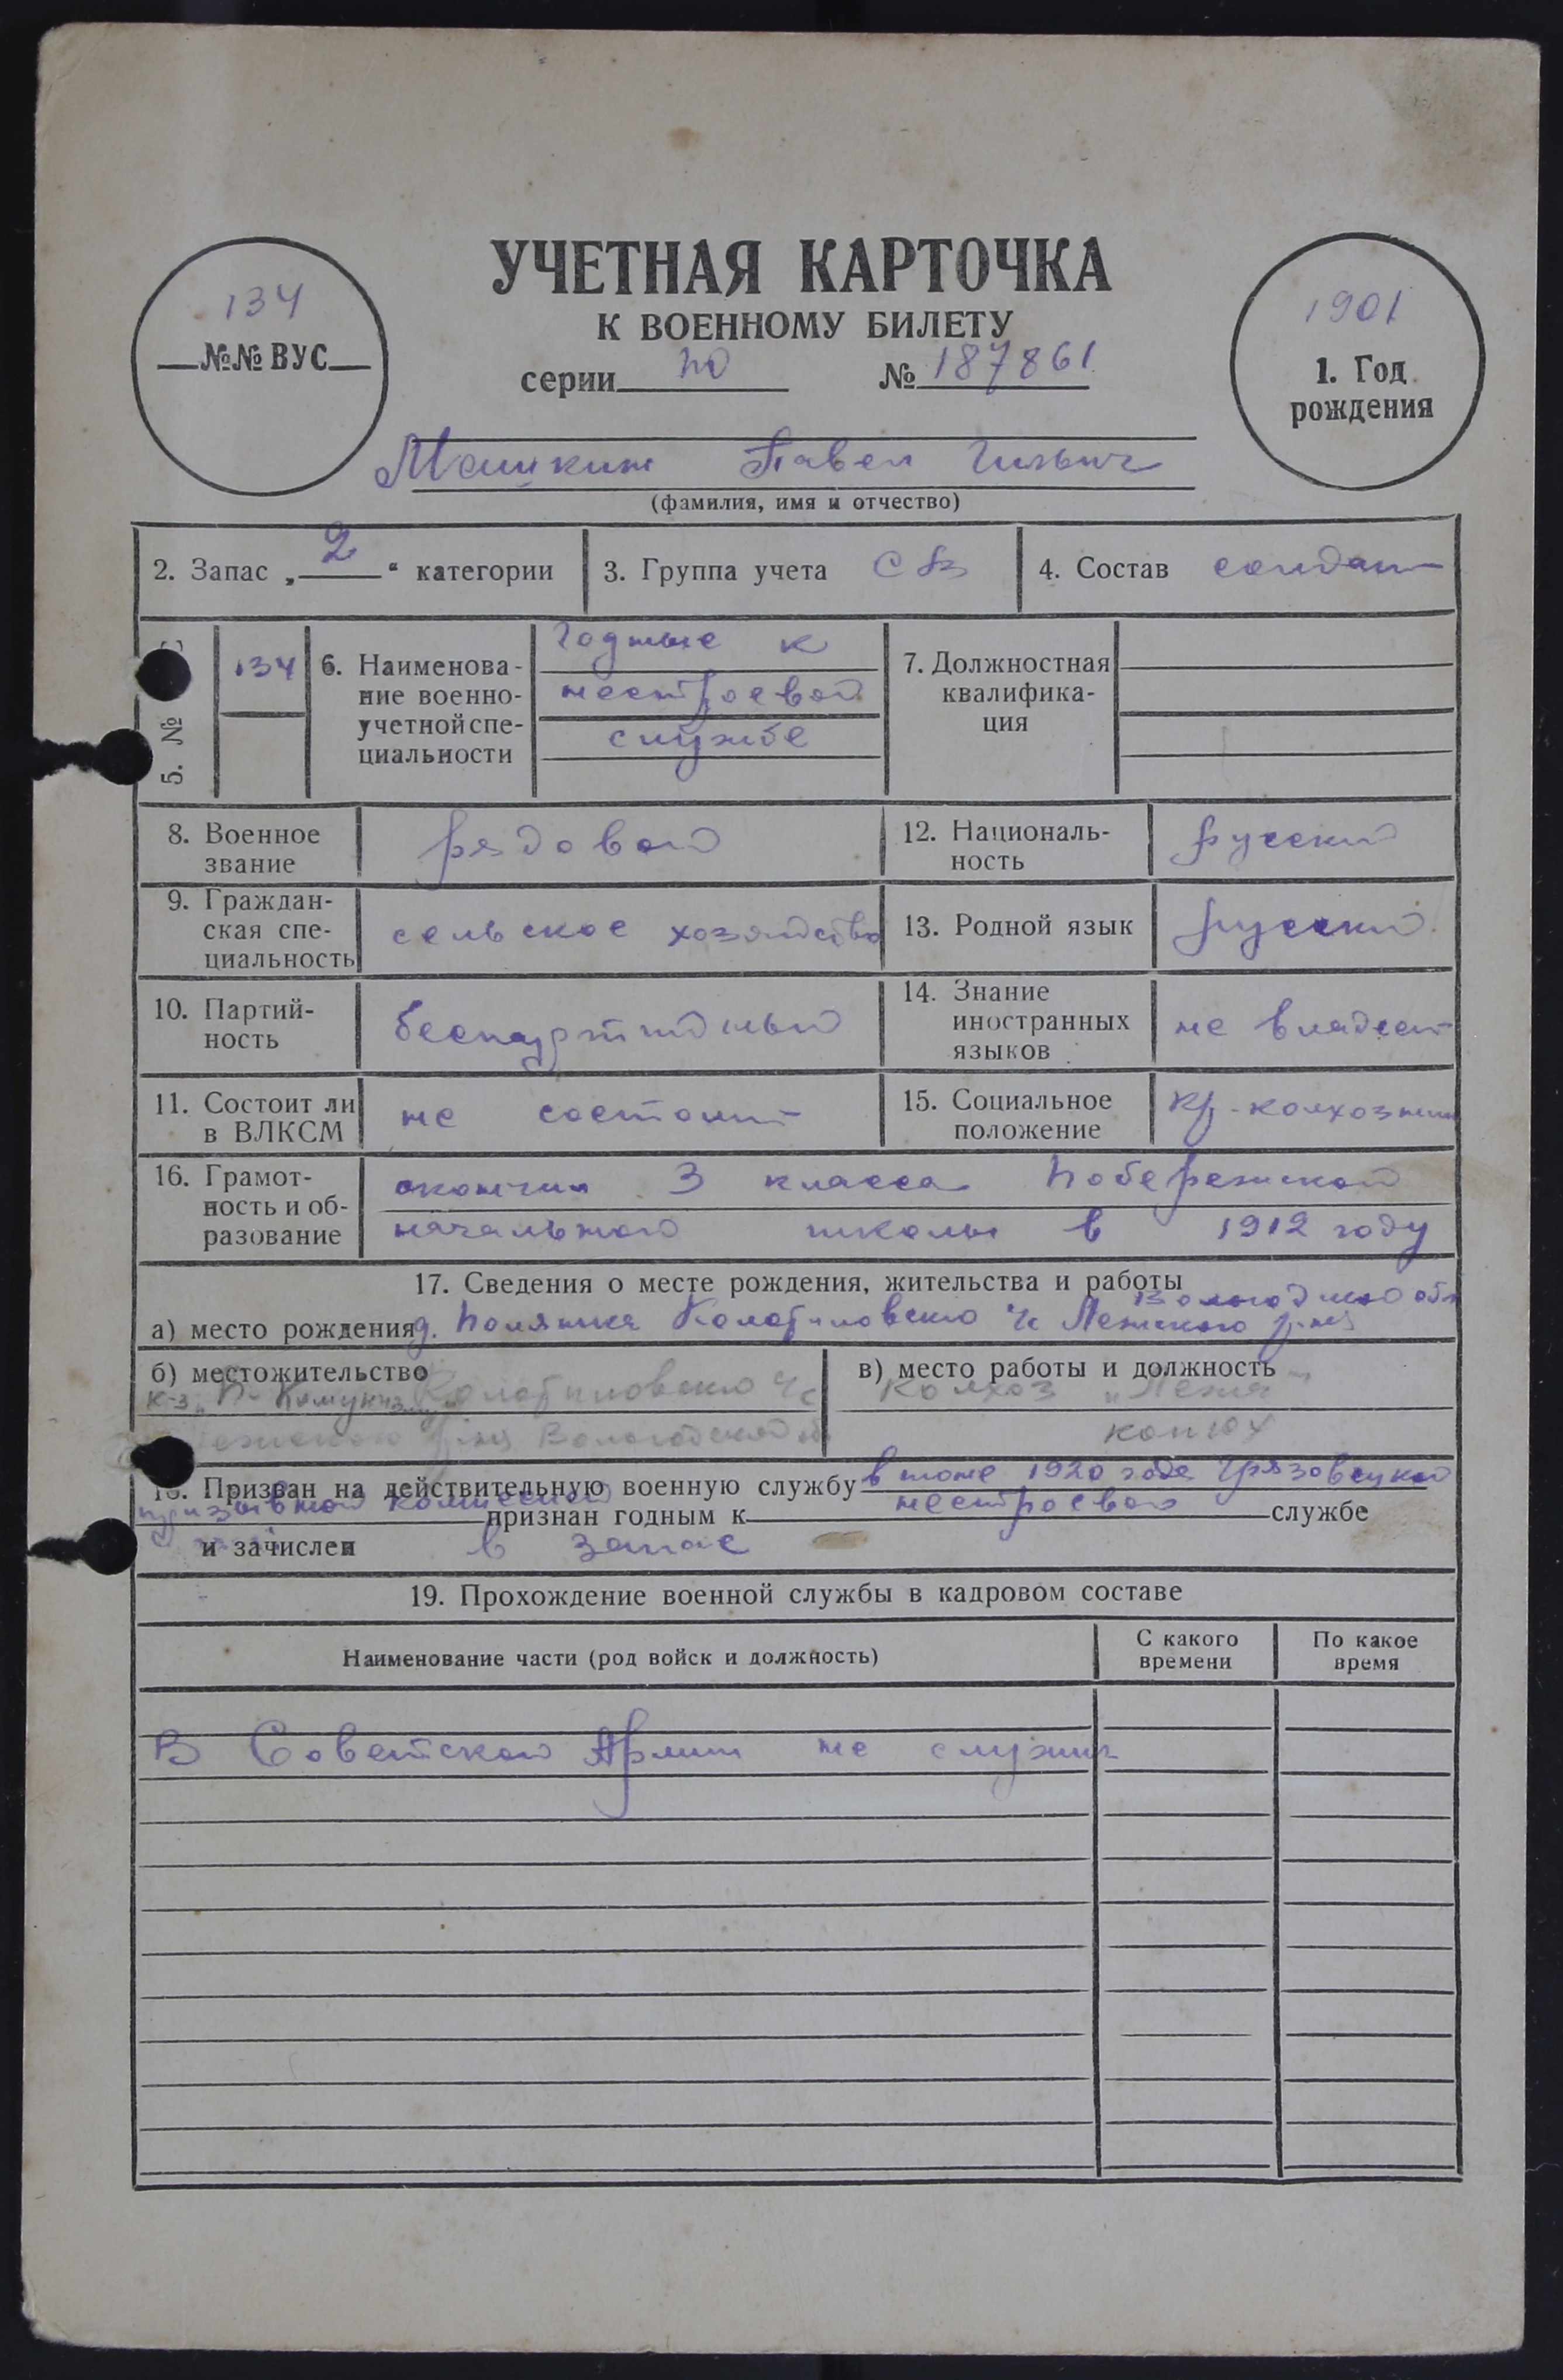 УЧЕТНАЯ КАРТОЧКА
К ВОЕННОМУ БИЛЕТУ
серии НО № 187861
134
№№ ВУС
1901
1. Год рождения
Машкин Павел Ильич
(фамилия, имя и отчество)
2. Запас „2“ категории
3. Группа учета СВ
4. Состав солдат
5. №
134
6. Наименова-
ние военно-
учетной спе-
циальности
Годные к
нестроевой
службе
7. Должностная
квалифика-
ция
8. Военное
звание
рядовой
12. Националь-
ность
русский
9. Граждан-
ская спе-
циальность
сельское хозяйство
13. Родной язык
русский
10. Партий-
ность
беспартийный
14. Знание
иностранных
языков
не владеет
11. Состоит ли
в ВЛКСМ
не состоит
15. Социальное
положение
кр-колхозник
16. Грамот-
ность и об-
разование
окончил 3 класса Побережской
начальной школы в 1912 году
17. Сведения о месте рождения, жительства и работы
Вологодской обл
а) место рождения д. Полянка Лежского р-на
б) местожительство
Вологодской
в) место работы и должность
Колхоз „Лежа“
конюх
18. Призван на действительную военную службу в мае 1920 года Грязовецкой
призывной комиссией признан годным к нестроевой службе
и зачислен в запас
19. Прохождение военной службы в кадровом составе
Наименование части (род войск и должность)
С какого
времени
По какое
время
В Советской Армии не служил